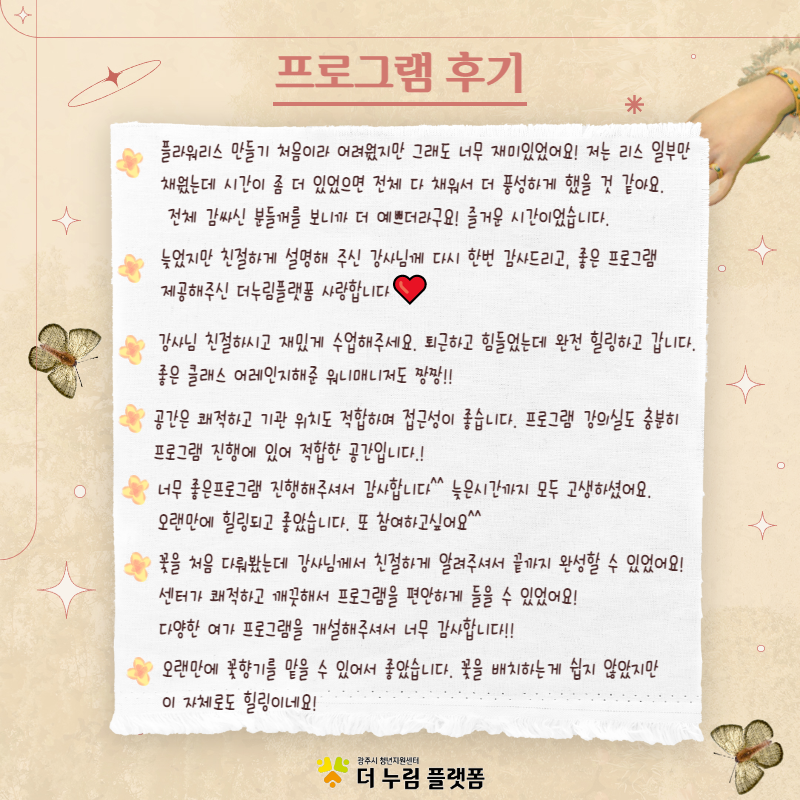 프로그램 후기
플라워리스 만들기 처음이라 어려웠지만 그래도 너무 재미있었어요! 저는 리스 일부만
채웠는데 시간이 좀 더 있었으면 전체 다 채워서 더 풍성하게 했을 것 같아요.
전체 감싸신 분들꺼를 보니까 더 예쁘더라구요! 즐거운 시간이었습니다.
늦었지만 친절하게 설명해 주신 강사님께 다시 한번 감사드리고, 좋은 프로그램
제공해주신 더누림플랫폼 사랑합니다
강사님 친절하시고 재밌게 수업해주세요. 퇴근하고 힘들었는데 완전 힐링하고 갑니다.
좋은 클래스 어레인지해준 워니매니저도 짱짱!!
공간은 쾌적하고 기관 위치도 적합하며 접근성이 좋습니다. 프로그램 강의실도 충분히
프로그램 진행에 있어 적합한 공간입니다.!
너무 좋은프로그램 진행해주셔서 감사합니다^^ 늦은시간까지 모두 고생하셨어요.
오랜만에 힐링되고 좋았습니다. 또 참여하고싶어요^^
꽃을 처음 다뤄봤는데 강사님께서 친절하게 알려주셔서 끝까지 완성할 수 있었어요!
센터가 쾌적하고 깨끗해서 프로그램을 편안하게 들을 수 있었어요!
다양한 여가 프로그램을 개설해주셔서 너무 감사합니다!!
오랜만에 꽃향기를 맡을 수 있어서 좋았습니다. 꽃을 배치하는게 쉽지 않았지만
이 자체로도 힐링이네요!
광주시 청년지원센터
더 누림 플랫폼